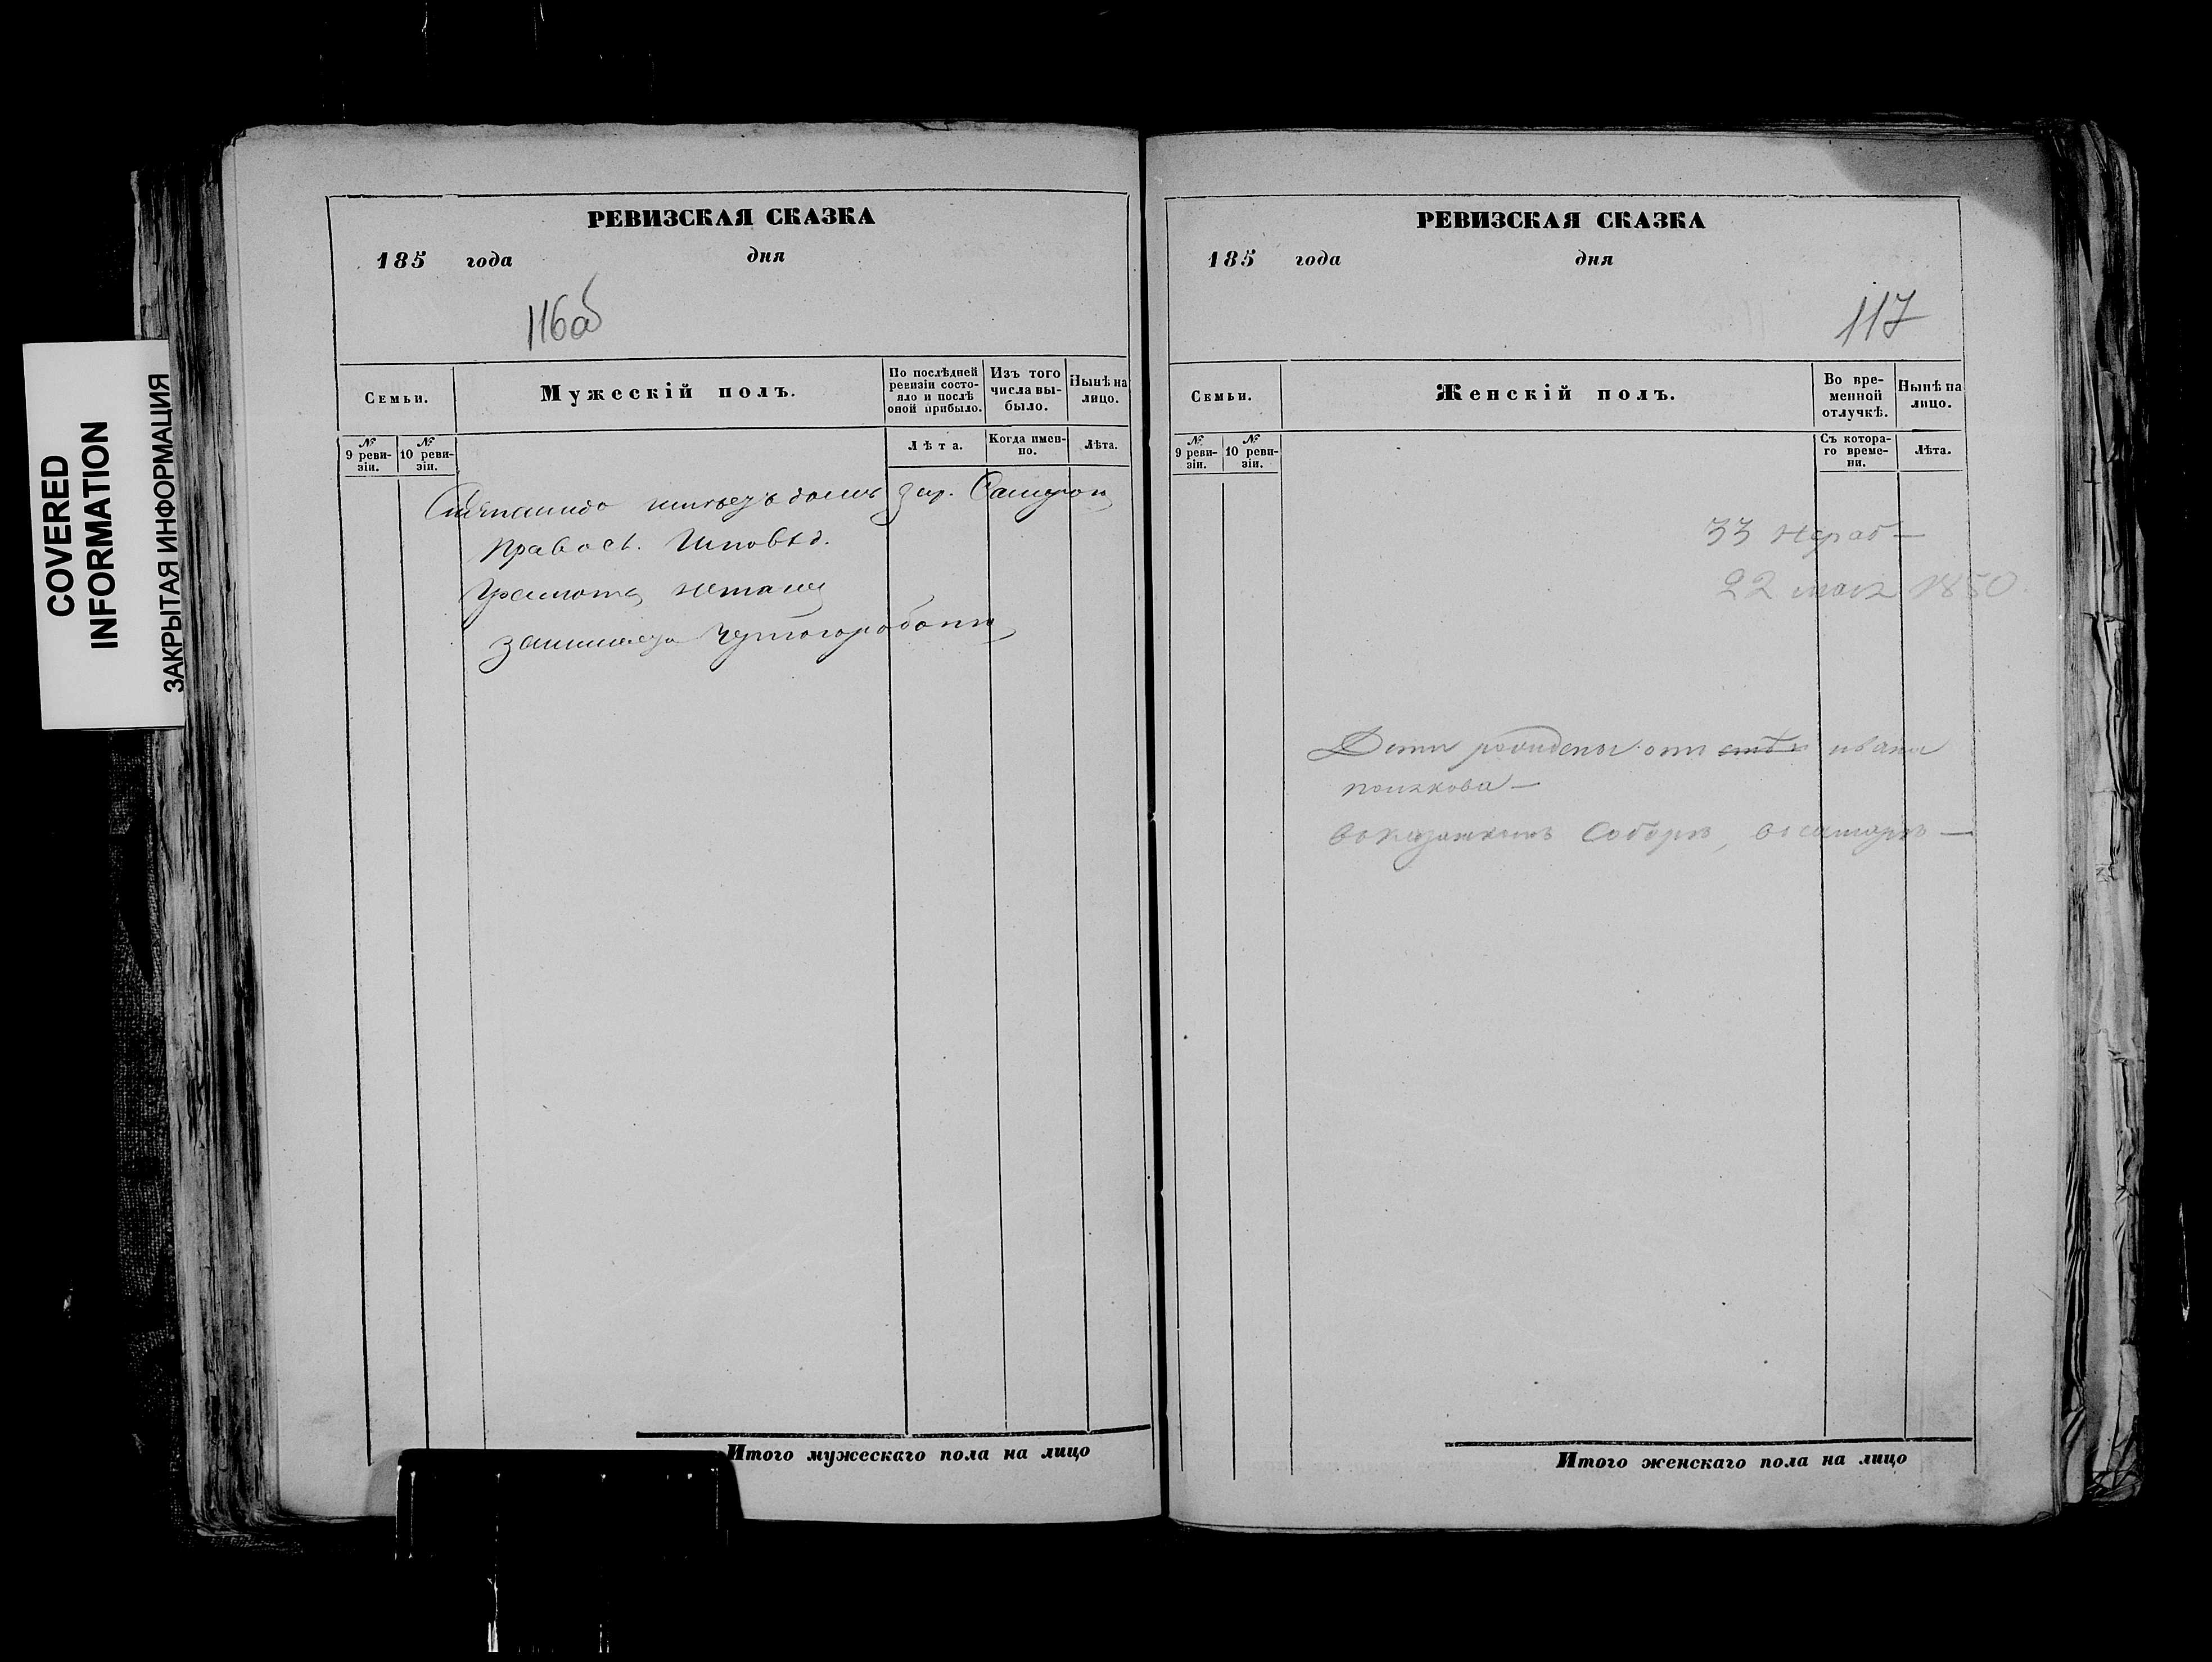 COVERED
INFORMATION
ЗАКРЫТАЯ ИНФОРМАЦИЯ
РЕВИЗСКАЯ СКАЗКА
185 года дня
116об
Семьи.
Мужескій полъ.
По послѣдней ревизіи состояло и послѣ оной прибыло.
Изъ того числа выбыло.
Нынѣ на лицо.
№ 9 ревизіи.
№ 10 ревизіи.
Лѣта.
Когда именно.
Лѣта.
домъ
Правосл. Исповѣд.
Грамотѣ
Итого мужескаго пола на лицо
РЕВИЗСКАЯ СКАЗКА
185 года дня
117
Семьи.
Женскій полъ.
Во временной отлучкѣ.
Нынѣ на лицо.
№ 9 ревизіи.
№ 10 ревизіи.
Съ котораго времени.
Лѣта.
33
22 1850
Дети рождены от ивана
полякова —
Соборѣ,
Итого женскаго пола на лицо